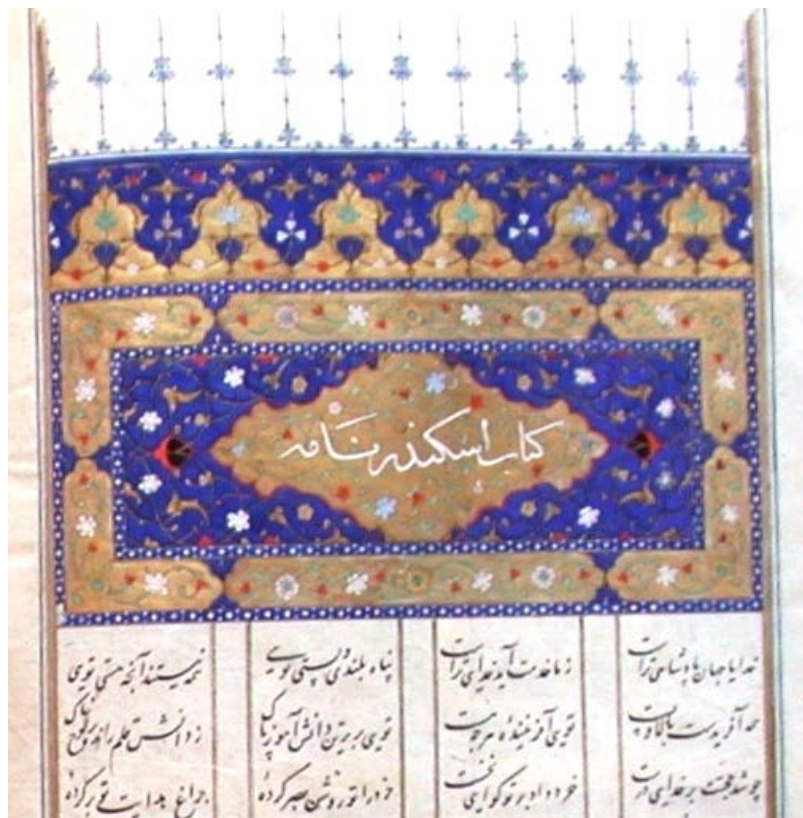 کتاب اسکندرنامه
خدایا جهان پادشاهی تراست زما خدمت آید خدای تراست پناه بلندی و پستی توی همه نیستند آنچه هستی توی
همه آفریدست بالا و پست توی آفرینندهٔ هرچه هست توی برترین دانش آموز پاک ز دانش قلم رانده بر لوح خاک
چو شد حجتت بر خدای درست خرد داد بر تو گوای نخست خرد را تو روشن بصر کردهٔ چراغ هدایت تو بر کردهٔ